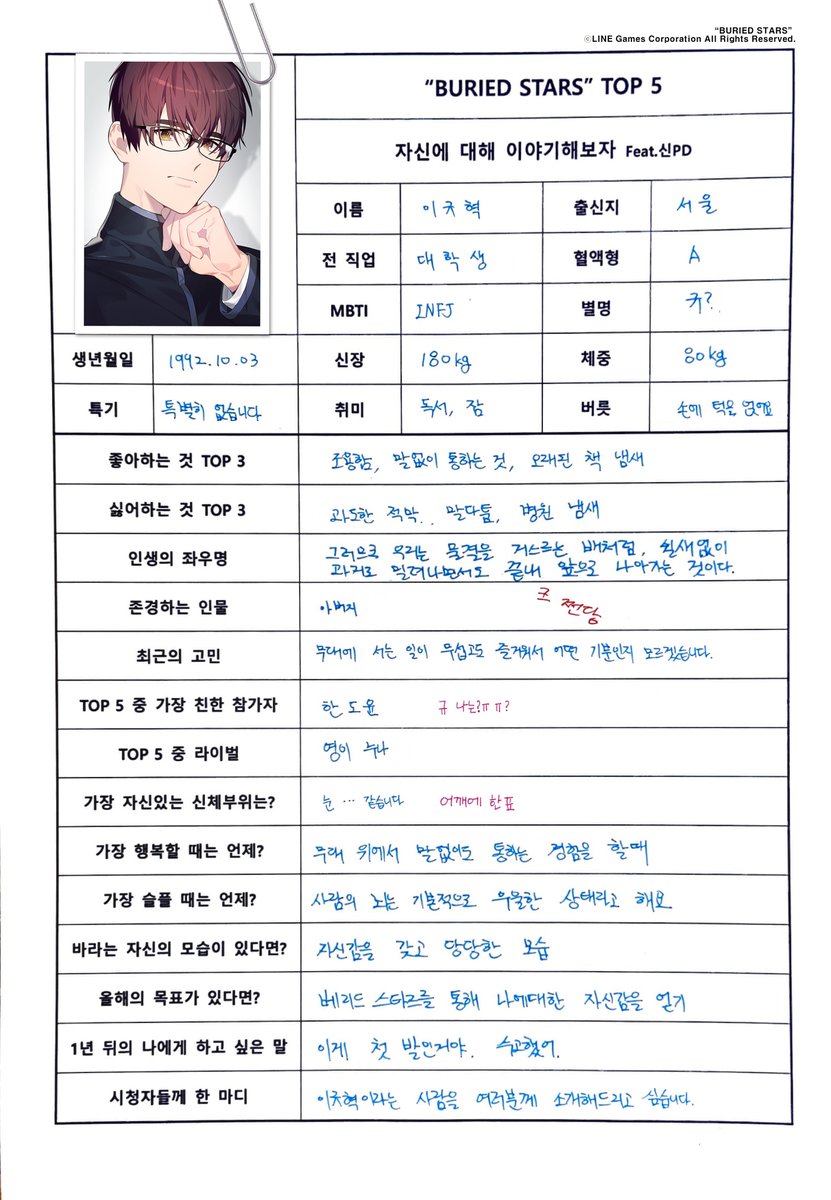 “BURIED STARS”
ⓒLINE Games Corporation All Rights Reserved.
“BURIED STARS” TOP 5
자신에 대해 이야기해보자 Feat.신PD
이름 이규혁 출신지 서울
전 직업 대학생 혈액형 A
MBTI INFJ 별명 규?
생년월일 1992.10.03 신장 180kg 체중 80kg
특기 특별히 없습니다 취미 독서, 잠 버릇 손에 턱을 얹어요
좋아하는 것 TOP 3 조용함, 말없이 통하는 것, 오래된 책 냄새
싫어하는 것 TOP 3 과도한 적막, 말다툼, 병원 냄새
인생의 좌우명 그러므로 우리는 물결을 거스르는 배처럼, 쉴새없이
과거로 밀려나면서도 끝내 앞으로 나아가는 것이다.
존경하는 인물 아버지 크 쩐당
최근의 고민 무대에 서는 일이 무섭고도 즐거워서 어떤 기분인지 모르겠습니다.
TOP 5 중 가장 친한 참가자 한도윤 규 나는?ㅠㅠ?
TOP 5 중 라이벌 영이 누나
가장 자신있는 신체부위는? 눈 … 같습니다 어깨에 한표
가장 행복할 때는 언제? 무대 위에서 말없이도 통하는 경험을 할때
가장 슬플 때는 언제? 사람의 뇌는 기본적으로 우울한 상태라고 해요
바라는 자신의 모습이 있다면? 자신감을 갖고 당당한 모습
올해의 목표가 있다면? 베리드 스타즈를 통해 나에대한 자신감을 얻기
1년 뒤의 나에게 하고 싶은 말 이게 첫 발인거야. 수고했어.
시청자들께 한 마디 이규혁이라는 사람을 여러분께 소개해드리고 싶습니다.